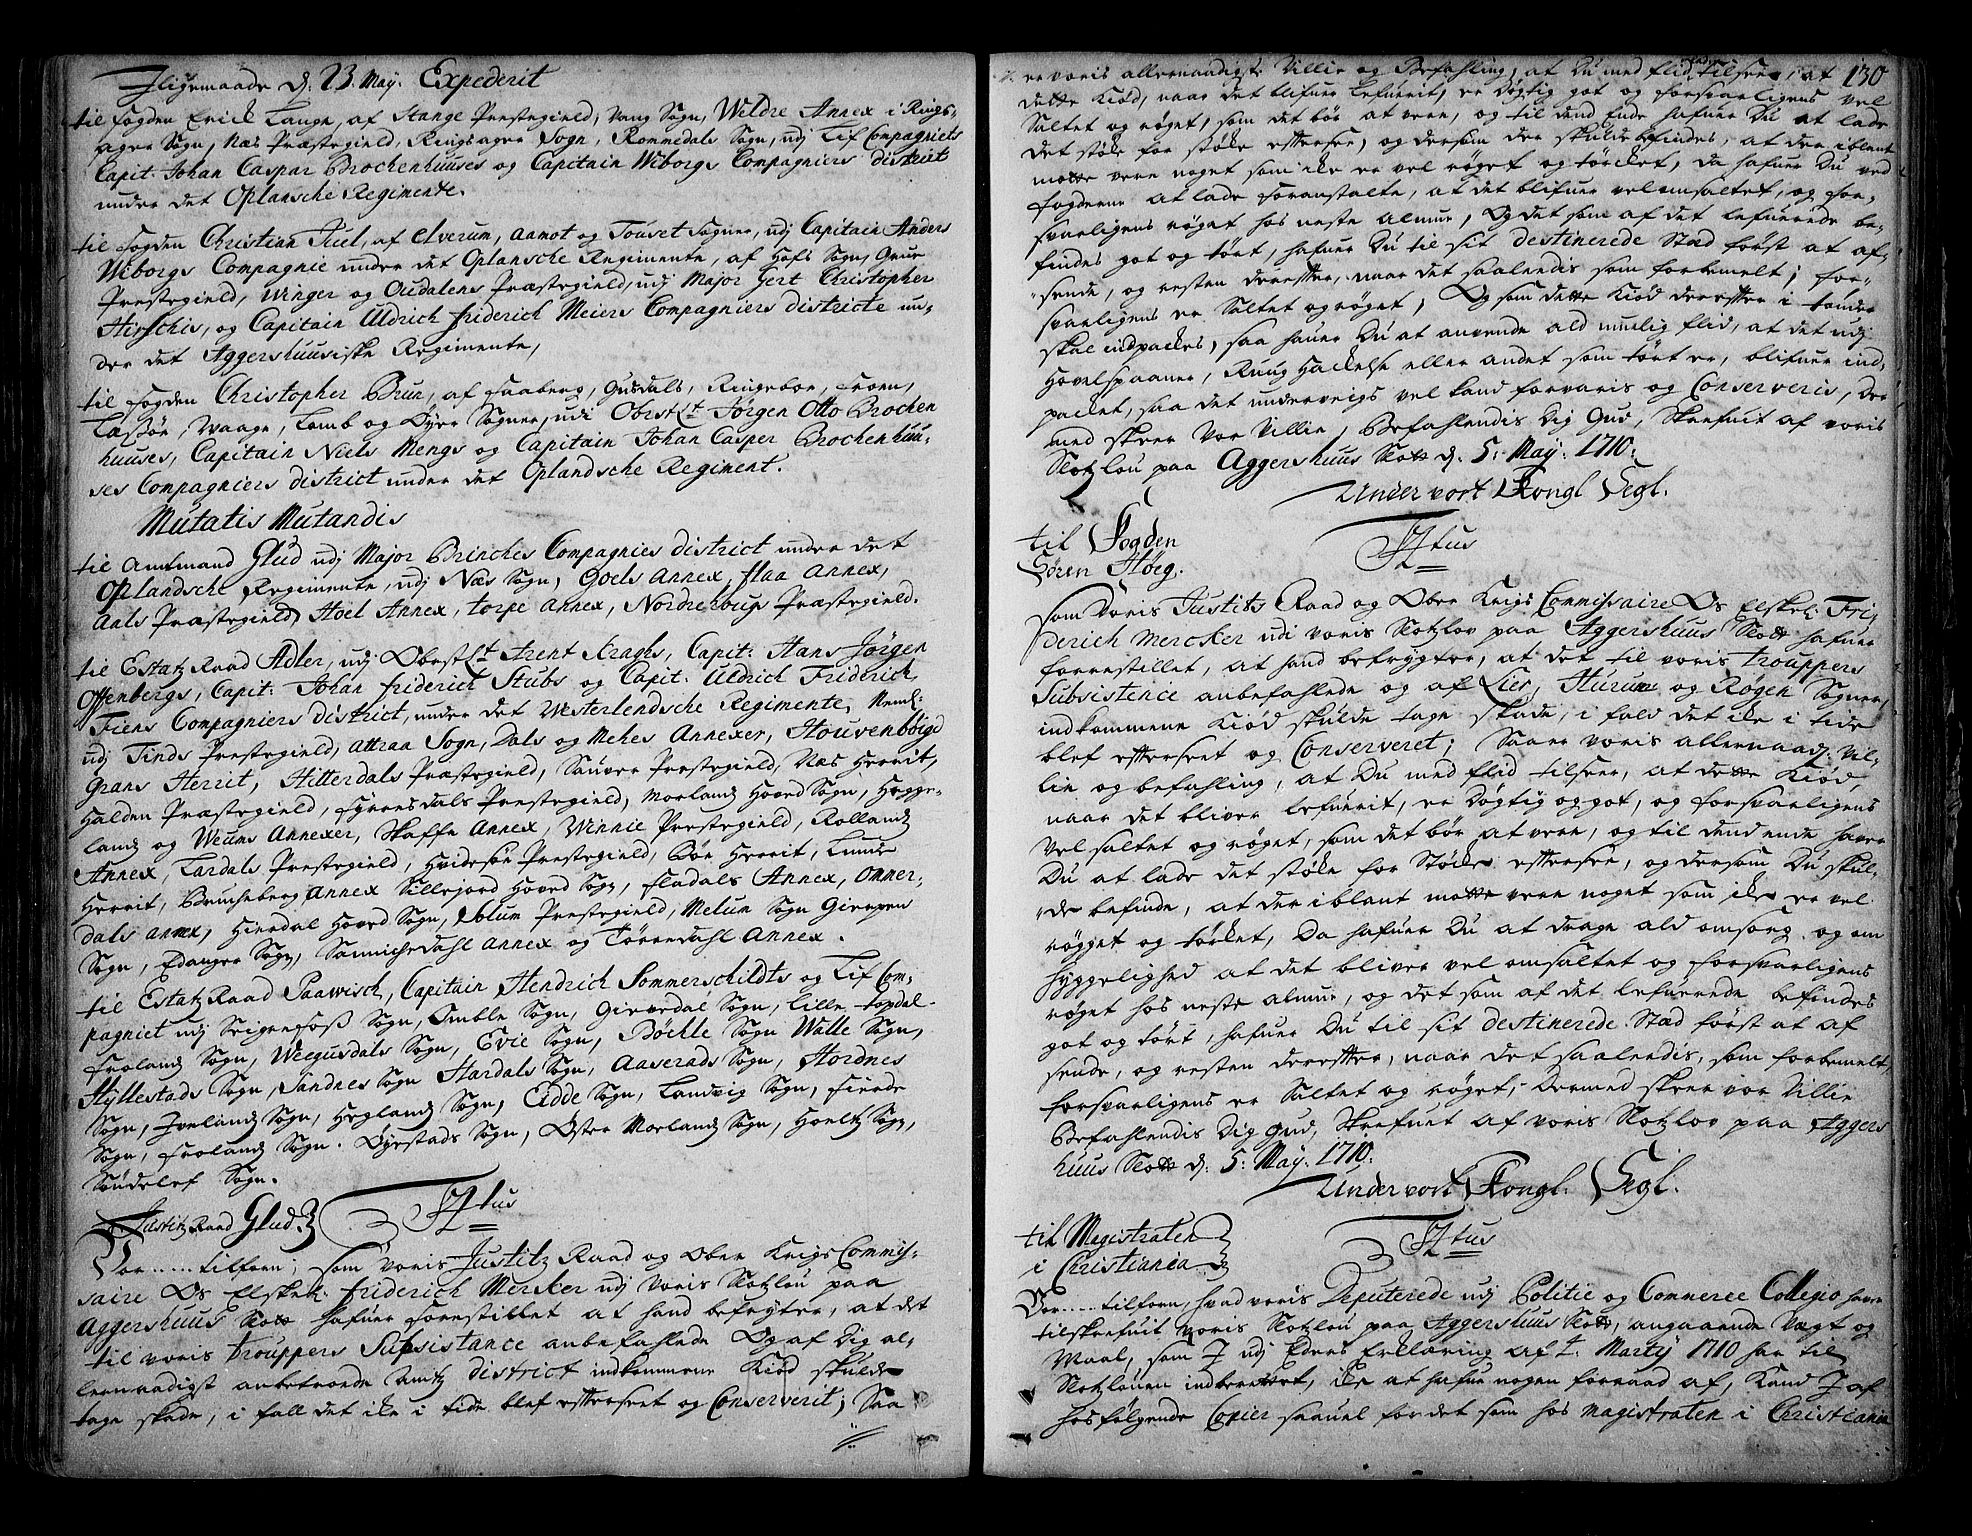 Jligemaade d. 23 May. Expederit
til fogden Erick Lange, af Stange Prestegield, Vang Sogn, Wildre Annex i Rings-
ager Sogn, Næs Præstegield, Ringsager Sogn, Rommedals Sogn, udj Lif Compagniets
Capit: Johan Caspar Brochenhuuses og Capitain Wiborgs Compagniers district
under det Oplansche Regimente.
til fogden Christian Juel, af Elverum, Aamot og Touset Sogner, udj Capitain Anders
Wiborgs Compagnie under det Oplansche Regimente, af Hofs Sogn, Grue
Prestegield, Winger og Oudalens Præstegield, udj Major Gert Christopher
Hirschis, og Capitain Uldrich friderich Meiers Compagniers districte un-
der det Aggershuusiske Regimente,
til fogden Christopher Brun, af faaberg, Gusdals, Ringeboe, froen,
Lassøe, Waage, Lomb og Øyer Sogner, udi Obrist Lt Jørgen Otto Brochen
huuses, Capitain Niels Mengs og Capitain Johan Casper Brochenhuu-
ses Compagniers district under det Oplandsche Regiment.
Mutatis Mutandis
til Amtmand Glud udj Major Brinches Compagnies district under det
Oplandsche Regimente, udj Næs Sogn, Goels Annex, flaa Annex,
Aals Præstegield, Hoel Annex, torpe Annex, Nordrehoups Præstegield.
til Estatz Raad Adler, udj Obrist Lt Arent Kraghs, Capit: Hans Jørgen
Offenbergs, Capit: Johan friderich Stubs og Capit: Uldrich Friderich
Fiens Compagniers district, under det Westerlendsche Regimente, Neml:
udj Tinds Prestegield, Attraa Sogn, Dals og Mehes Annexer, Houvenbøigd
Grans Herrit, Hitterdals Præstegield, Sauver Prestegield, Næs Herrit,
Halden Præstegield, fyrresdals Prestegield, Morlands Hoved Sogn, Hegge-
lands og Weums Annexer, Skaffse Annex, Winnie Prestegield, Rollands
Annex, Lardals Prestegield, Hvidesøe Prestegield, Bøe Herrit, Lunde
Herrit, Brunkeberg Annex Sillejord Hoved Sogn, fladals Annex, Omner-
dals Annex, Hierdal Hoved Sogn, Solum Prestegield, Melum Sogn Gierpen
Sogn, Edanger Sogn, Sannichedahl Annex og Tørredahl Annex.
til Estatz Raad Paawisch, Capitain Hendrich Sommerschildts og Lif Com-
pagniet udj Seigensfoss Sogn, Omble Sogn, Gievedal Sogn, Lille topdal
froland Sogn, Weegusdals Sogn, Evie Sogn, Bøchle Sogn Walle Sogn,
Hyllestads Sogn, Sandnes Sogn Hardals Sogn, Aaserads Sogn, Hordnes
Sogn, Iveland Sogn, Hegland Sogn, Eidde Sogn, Landvig Sogn, fierde
Sogn, froland Sogn. Øyestads Sogn, Øster Morland Sogn, Hoeltz Sogn,
Søndelef Sogn.
Justitz Raad Glud. F 4tus
Vor ...... tilforn, som voris Justitz Raad og Ober Krigs Commis-
saire Os Elskel. friderich Mercker udj voris Slotzlou paa
Aggershuus Slott hafuer forrestillet at hand befrygter, at det
til voris trouppers Subsistance anbefahlede Og af Dig al-
lernaadigst anbetroede Amtz district indkommene Kiød skulde
tage skade, i fall det iche i tide blef efterseet og Conserverit; Saa
130
er voris allernaadigste Villie og Befahling, at Du med flid lader tilsee, at
dette Kiød, naar det blifuer lefuerit, er døgtig got og forsvarligens vel
Saltet og røget, som det bør at vere, og til dend Ende hafuer Du at lade
det støche for støche eftersee, og dersom der skulde befindes, at der iblant
motte vere noget som iche er vel røget og tørcket, da hafuer Du ved
fogderne at lade foranstalte, at det blifuer vel omsaltet, og for-
svarligens røget hos neste almue, Og det som af det lefuerede be-
findes got og tørt, hafuer Du til sit destinerede Stad først at af-
sende, og resten derefter, naar det saalendis som forbemelt, for-
svarligens er Saltet og røget; Og som dette Kiød derefter i tønder
skal indpackes, saa hauer Du at anvende ald muelig flid, at det udj
Hovelspaaner, Ruug Hackelse eller andet som tørt er, blifuer ind-
packet, saa det underveigs vel kand forvaris og Conserveris, Der
med skeer Vor Villie, Befahlendis Dig Gud, Skrefuit af voris
Slotzlou paa Aggershuus Slott d. 5. May. 1710.
Under vort Kongl Segl.
til Fogden
Søren Høeg. F 4tus
Som Voris Justits Raad og Ober Krigs Commissaire Os Elskel. Fri-
derich Mercker udi voris Slotzlov paa Aggershuus Slott hafuer
forrestillet, at hand befrygter, at det til voris trouppers
Subsistence anbefahlede og af Lier, Hurum og Røgen Sogner,
indkommene Kiød skulde tage skade, i fald det iche i tide
blef efterseet og Conserveret; Saa er voris allernaadst: Vil-
lie og befahling, at Du med flid tilseer, at dette Kiød,
naar det bliver lefuerit, er døgtig og got, og forsvarligens
vel saltet og røget, som det bør at vere, og til dend ende haver
Du at lade det støche for støche eftersee, og dersom Du skul-
de befinde, at der iblant motte vere noget som iche er vel
røgget og tørcket, Da hafuer Du at drage ald omsorg og om
hyggelighed at det bliver vel omsaltet og forsvarligens
røget hos neste almue, og det som af det lefuerede befindes
got og tørt, hafuer Du til sit destinerede Stad først at af
sende, og resten derefter, naar det saalendis, som forbemelt,
forsvarligens er Saltet og røget; Dermed skeer vor Villie
Befahlendis Dig Gud, Skrefuit af voris Slotzlov paa Aggers
huus Slott d. 5. May. 1710.
Under vort Kongl. Segl.
til Magistraten
i Christiania. F 4tus
Vor ...... tilforn, hvad voris Deputerede udj Politie og Commerce Collegio haver
tilskrefuit voris Slotzlou paa Aggershuus Slott, angaaende Vegt og
Maal, som J udj Eders Erklæring af 1. Martij 1710 har til
Slotzlouen indberettet, iche at hafue nogen forraad af, Kand J af
hosfølgende Copier saavel for det som hos Magistraten i Christiania